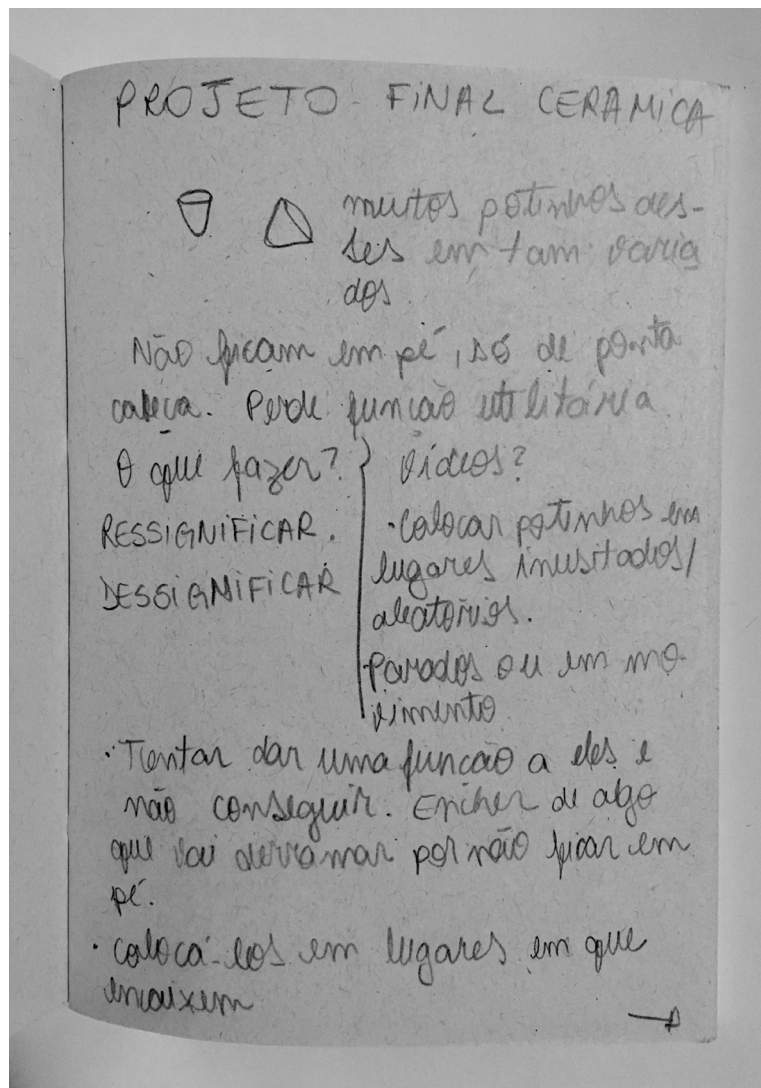 PROJETO - FINAL CERAMICA
muitos potinhos des-
ses em tam. varia
dos.
Não ficam em pé, só de ponta
cabeça. Perde funcão utilitária.
O que fazer? } Vídeos?
RESSIGNIFICAR.
DESSIGNIFICAR
· Colocar potinhos em
lugares inusitados/
aleatórios.
Parados ou em mo-
vimento.
· Tentar dar uma funcão a eles e
não conseguir. Encher de algo
que vai derramar por não ficar em
pé.
· colocá-los em lugares em que
encaixem
→